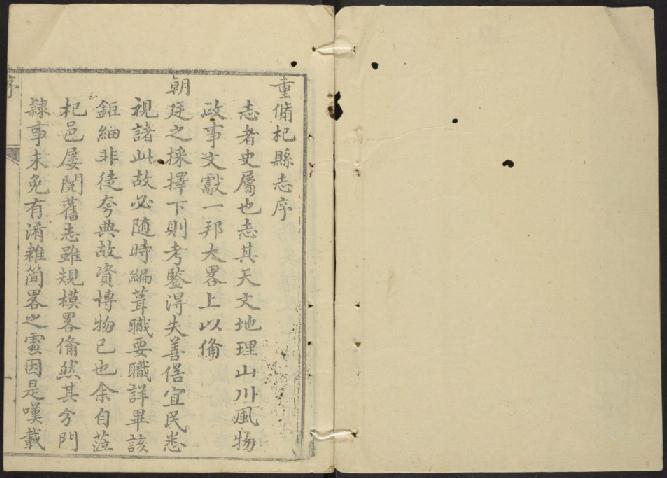 重脩杞縣志序
志者史屬也志其天文地理山川風物
政事文獻一邦大畧上以備
朝廷之採擇下則考鑒得失善俗宜民悉
視諸此故必隨時編葺職要職詳畢該
鉅細非徒夸典故資博物已也余自蒞
杞邑屡閱舊志雖規模畧備然其分門
隷事未免有淆雜简畧之處因是嘆載
序